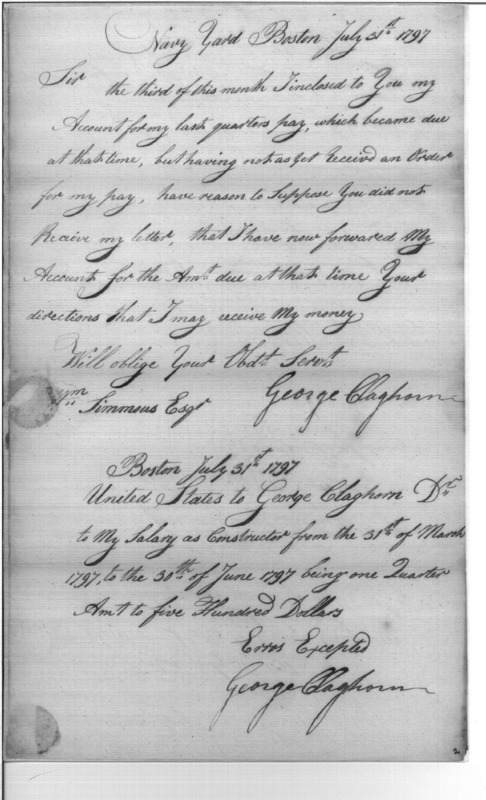 Navy Yard Boston July 31st 1797
Sir
the third of this month I inclosed to You my
Account for my last quarters pay, which became due
at that time, but having not as yet Receivd an Order
for my pay, have reason to Suppose You did not
Receive my letter, that I have now forwarded My
Account for the Amt due at that time Your
directions that I may receive My money
Will oblige Your Obdt Servt
George Claghorn
Wm Simmons Esqr
Boston July 31st 1797
United States to George Claghorn Dr
to My Salary as Constructor from the 31st of March
1797, to the 30th of June 1797 being one Quarter
Amt to five Hundred Dollars
Errors Excepted
George Claghorn
2